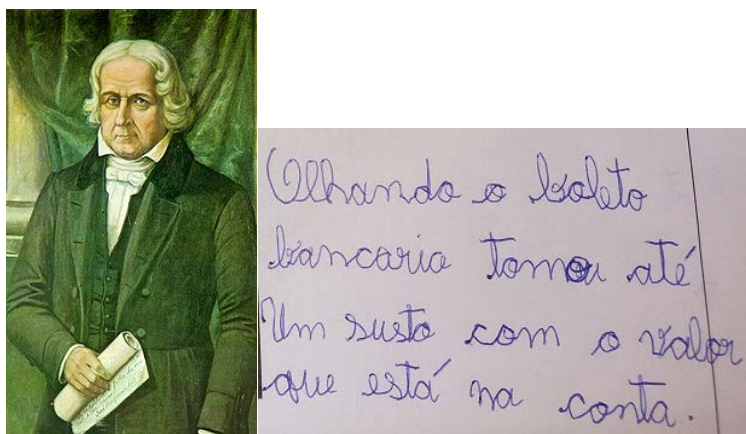 Olhando o boleto
bancario tomou até
Um susto com o valor
que está na conta.